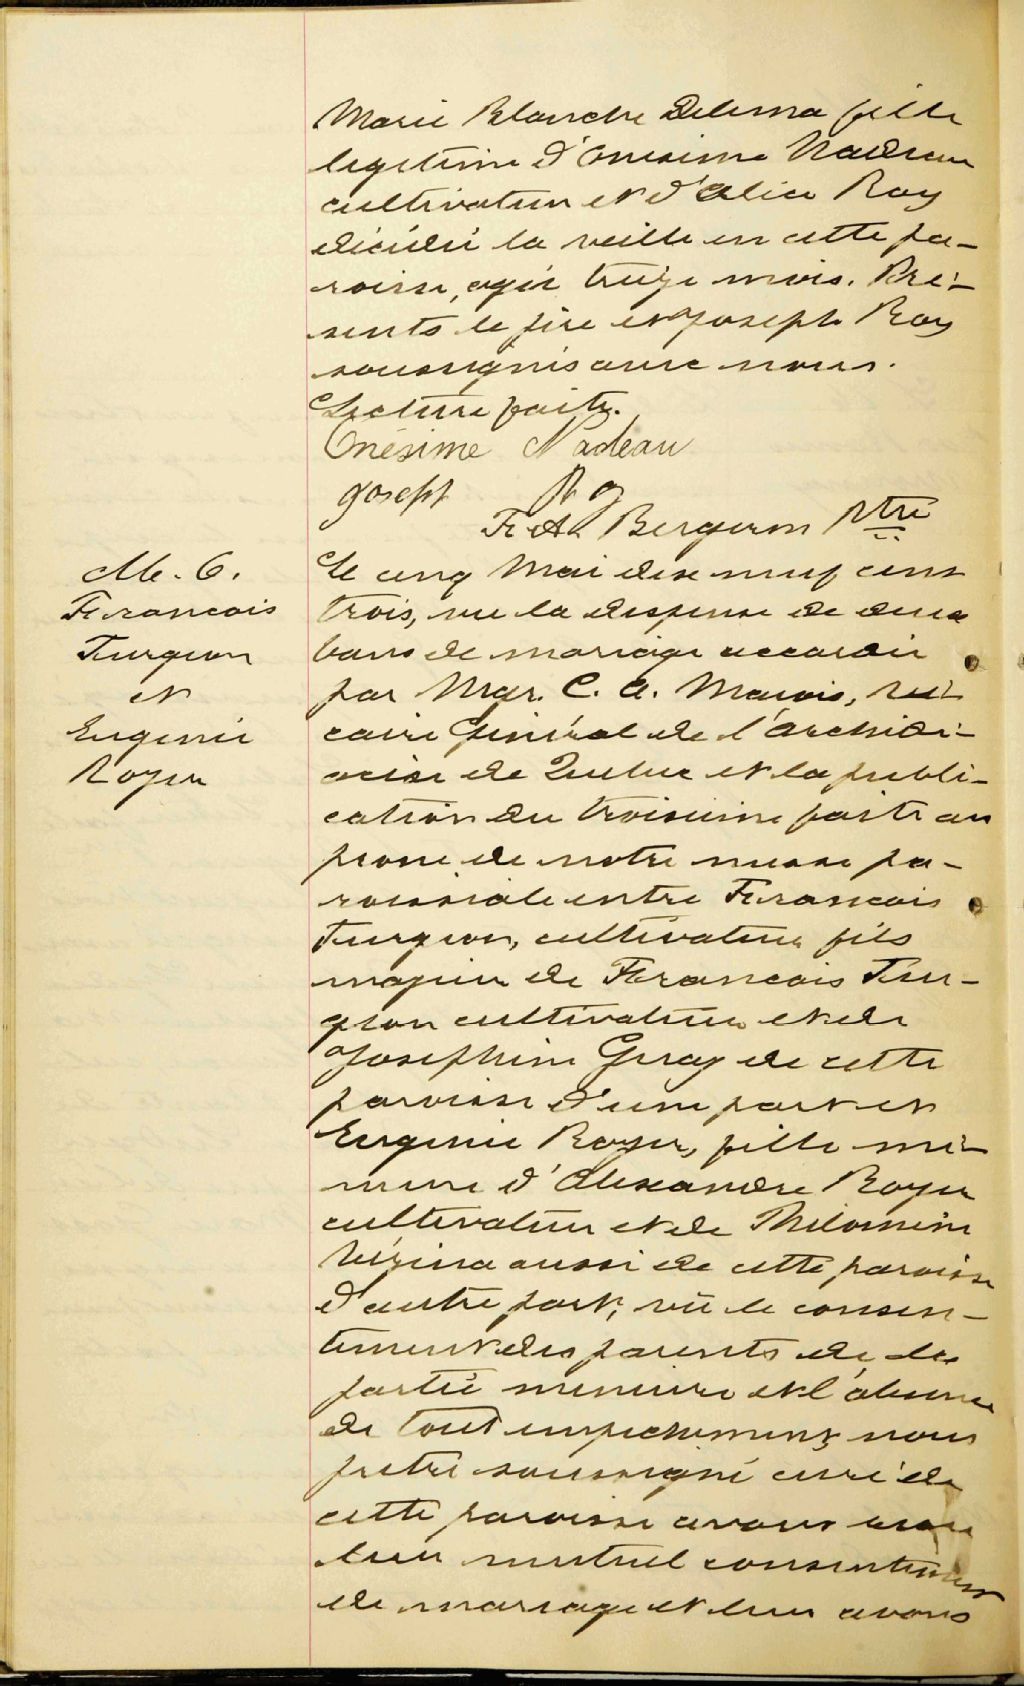 Marie Blanche Delima fille
légitime d'Onesime Nadeau
cultivateur et d'Alice Roy
décédée la veille en cette pa-
roisse, agée treize mois. Pré-
sents le père et Joseph Roy
soussignés avec nous.
Lecture faite.
Onésime Nadeau
Joseph Roy
Bergeron Ptre
M. 6.
Francois
Turgeon
et
Eugenie
Royer
Le cinq Mai dix neuf cent
trois, vu la dispense de deux
bans de mariage accordée
par Mgr. C. A. Marois, vi-
caire Général de l'Archidi-
ocèse de Quebec et la publi-
cation du troisième faite au
prone de notre messe pa-
roissiale entre Francois
Turgeon, cultivateur fils
majeur de Francois Tur-
geon cultivateur et de
Josephine de cette
paroisse d'une part et
Eugenie Royer, fille mi-
neure d'Alexandre Royer
cultivateur et de Philomène
Vézina aussi de cette paroisse
d'autre part; vu le consen-
tement des parents de la
partie mineure et l'absence
de tout empêchement nous
prêtre soussigné curé de
cette paroisse avons
leur mutuel consentement
de mariage et leur avons